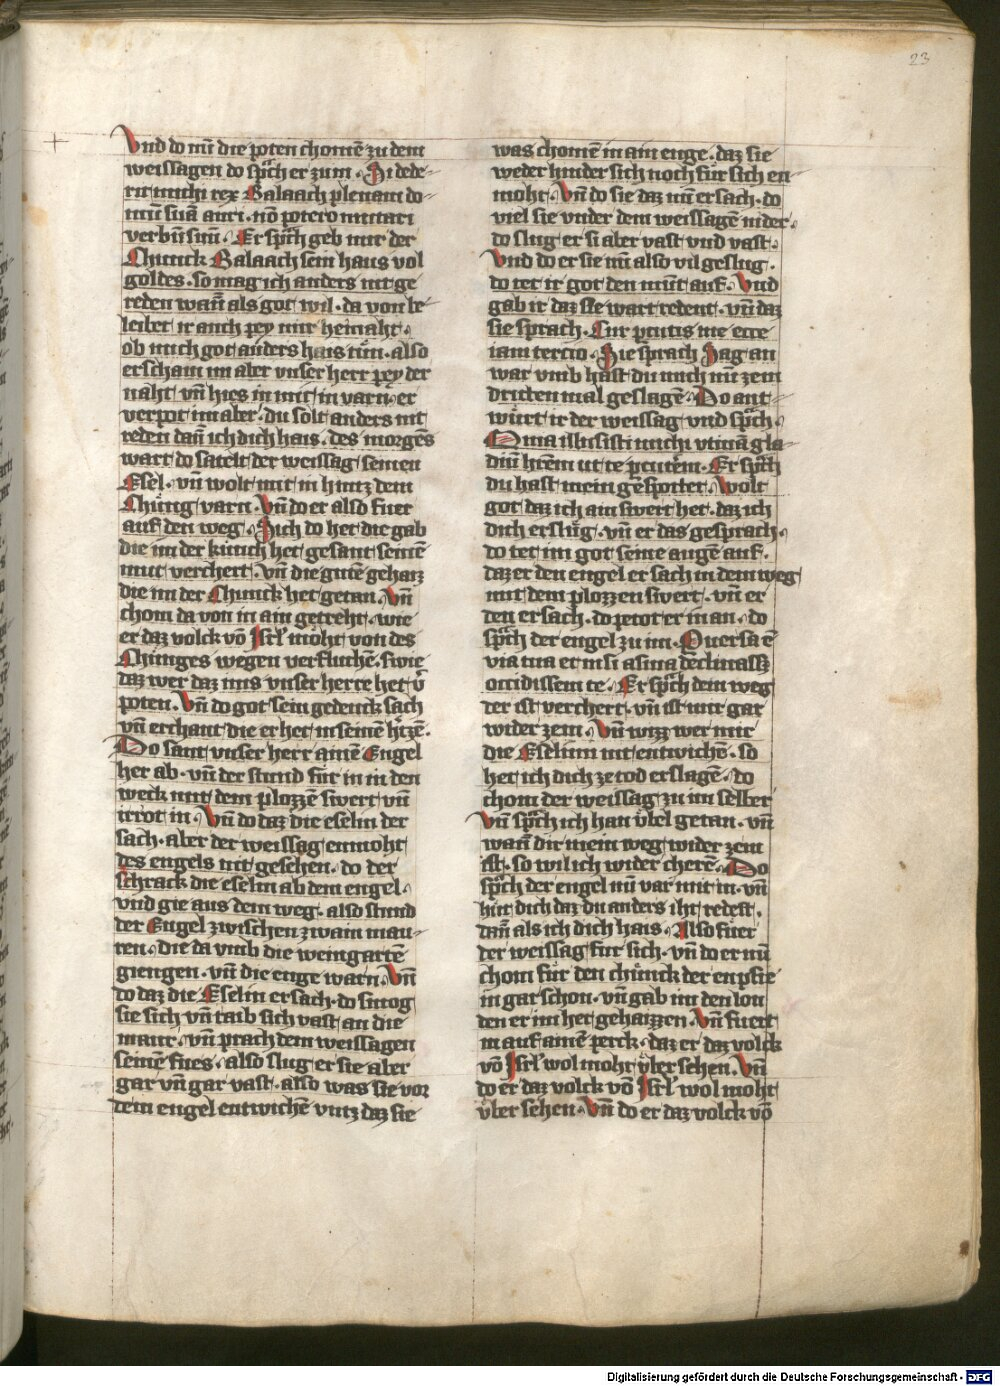 23
Vnd do nu͞ die poten chome͞ zu dem
weissagen do sp͛ch er zu im. Si dede-
rit michi rex Balaach plenam do-
mu͞ sua͞ auri. no͞ potero mutari
verbu͞ suu͞. Er sp͛ch geb mir der
Chunck Balaach sein haus vol
goldes. so mag ich anders nit ge
reden wan͞ als got wil. da von be-
leibet ir auch pey mir heinaht.
ob mich got anders hais tu͞n. also
erschain im aber vnser herr pey der
naht. vn͞ hies in mit in varn. er
verpot im aber. du solt anders nit
reden dan͞ ich dich hais. des morgens
wart do satelt der weissag seinen
Esel. vn͞ wolt mit in hintz dem
Chu͞ng varn. Vn͞ do er also fuer
auf den weg. Sich do het die gab
die im der kunich het gesant seine͞
mut verchert. Vn͞ die gute͞ gehaiz
die im der Chunck het getan. Vn͞
chom da von in ain getreht. wie
er daz volck vo͞ Isrl' möht von des
Chuniges wegen verfluche͞. swie
daz wer daz ims vnser herre het v͛
poten. Vn͞ do got sein gedenck sach
vn͞ erchant die er het in seine͞ h͛tze͞.
Do sant vnser herr aine͞ Engel
her ab. vn͞ der stund für in in den
weck mit dem plozze͞ swert vn͞
irrot in. Vn͞ do daz die eselin der
sach. aber der weissag enmoht
des engels nit gesehen. do der
schrack die eselin ab dem engel.
vnd gie aus dem weg. also stund
der Engel zwischen zwain mau-
ren. die da vmb die weingarte͞
giengen. vn͞ die enge warn. Vn͞
do daz die Eselin ersach. do smog
sie sich vn͞ raib sich vast an die
maur. vn͞ prach dem weissagen
seine͞ fues. also slug er sie aber
gar vn͞ gar vast. also was sie vor
dem engel entwiche͞ vntz daz sie
was chome͞ in ain enge. daz sie
weder hinder sich noch für sich en
moht. Vn͞ do sie daz nu͞ ersach. do
viel sie vnder dem weissage͞ nider.
do slug er si aber vast vnd vast.
Vnd do er sie nu͞ also vil geslug.
do tet ir got den mu͞t auf. Vnd
gab ir daz sie wart redent. vn͞ daz
sie sprach. Cur p̱cutis me ecce
iam tercio. Sie sprach Sag an
war vmb hast du mich nu͞ zem
dritten mal geslage͞. Do ant-
würt ir der weissag vnd sp͛ch.
Quia illusisti michi vtina͞ gla-
diu͞ h͛rem ut te p̱cut͛em. Er sp͛ch
du hast mein gespottet. Wolt
got daz ich ain swert het. daz ich
dich erslüg. vn͞ er das gesprach.
do tet im got seine auge͞ auf.
daz er den engel er sach in dem weg
mit dem plozzen swert. vn͞ er
den ersach. do petot er in an. do
sp͛ch der engel zu im. Peruersa e͞
via tua et nisi asina declinass͛
occidissem te. Er sp͛ch dem weg
der ist verchert. vn͞ ist mir gar
wider zem. Vn͞ wizz wer mir
die Eselinn nit entwiche͞. so
het ich dich ze tod erslage͞. do
chom der weissag zu im selber
Vn͞ sp͛ch ich han vbel getan. vn͞
wann dir mein weg wider zem
ist. so wil ich wider chere͞. Do
sp͛ch der engel nu͞ var mit in. vn͞
hüt dich daz du anders iht redest.
dan͞ als ich dich hais. Also füer
der weissag für sich. vn͞ do er nu͞
chom für den chünck der enpfie
in gar schon. vn͞ gab im den lon
den er im het gehaizzen. Vn͞ fuert
in auf aine͞ perck. daz er daz volck
vo͞ Isrl' wol moht vber sehen. Vn͞
do er daz volck vo͞ Isrl' wol moht
vber sehen. Vn͞ do er daz volck vo͞
Digitalisierung gefördert durch die Deutsche Forschungsgemeinschaft - DFG